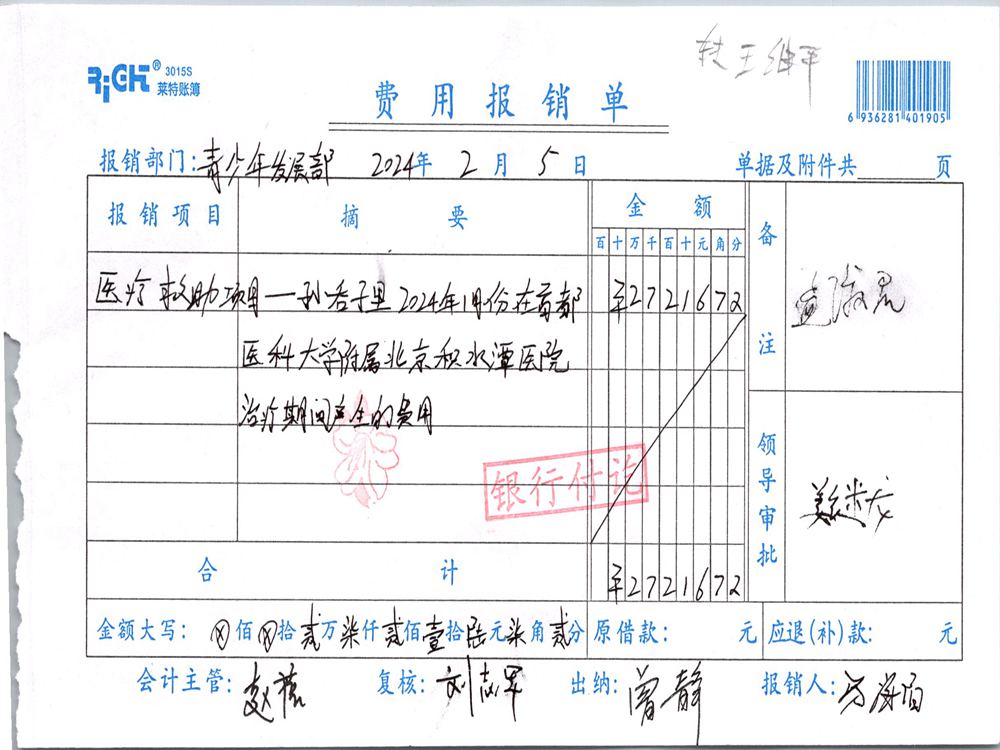 RiGHT® 3015S
莱特账簿
转王继平
费用报销单
6 936281 401905
报销部门:青少年发展部 2024年 2 月 5 日 单据及附件共 页
报销项目 摘要 金额 备注
百十万千百十元角分
医疗救助项目—孙 2024年1月份在首都 ¥2721672
医科大学附属北京积水潭医院
治疗期间产生的费用
银行付讫
领导审批
合计 ¥2721672
金额大写: ⊗佰⊗拾贰万柒仟贰佰壹拾陆元柒角贰分 原借款: 元 应退(补)款: 元
会计主管: 赵 复核: 刘志军 出纳: 曾静 报销人: